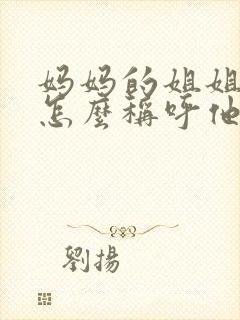 妈妈的姐姐
怎麼稱呼他
劉揚